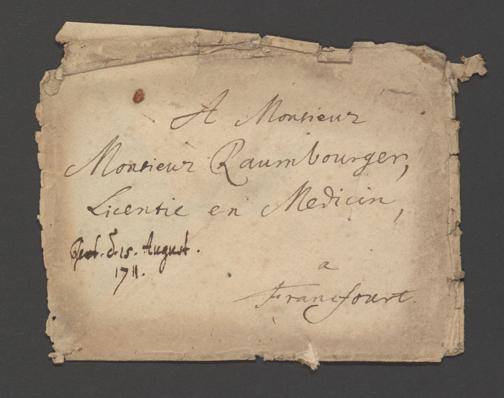 A Monsieur
Monsieur Raumbourger,
Licentie en Medicin,
d. 15. August.
1711.
a
Francfourt.